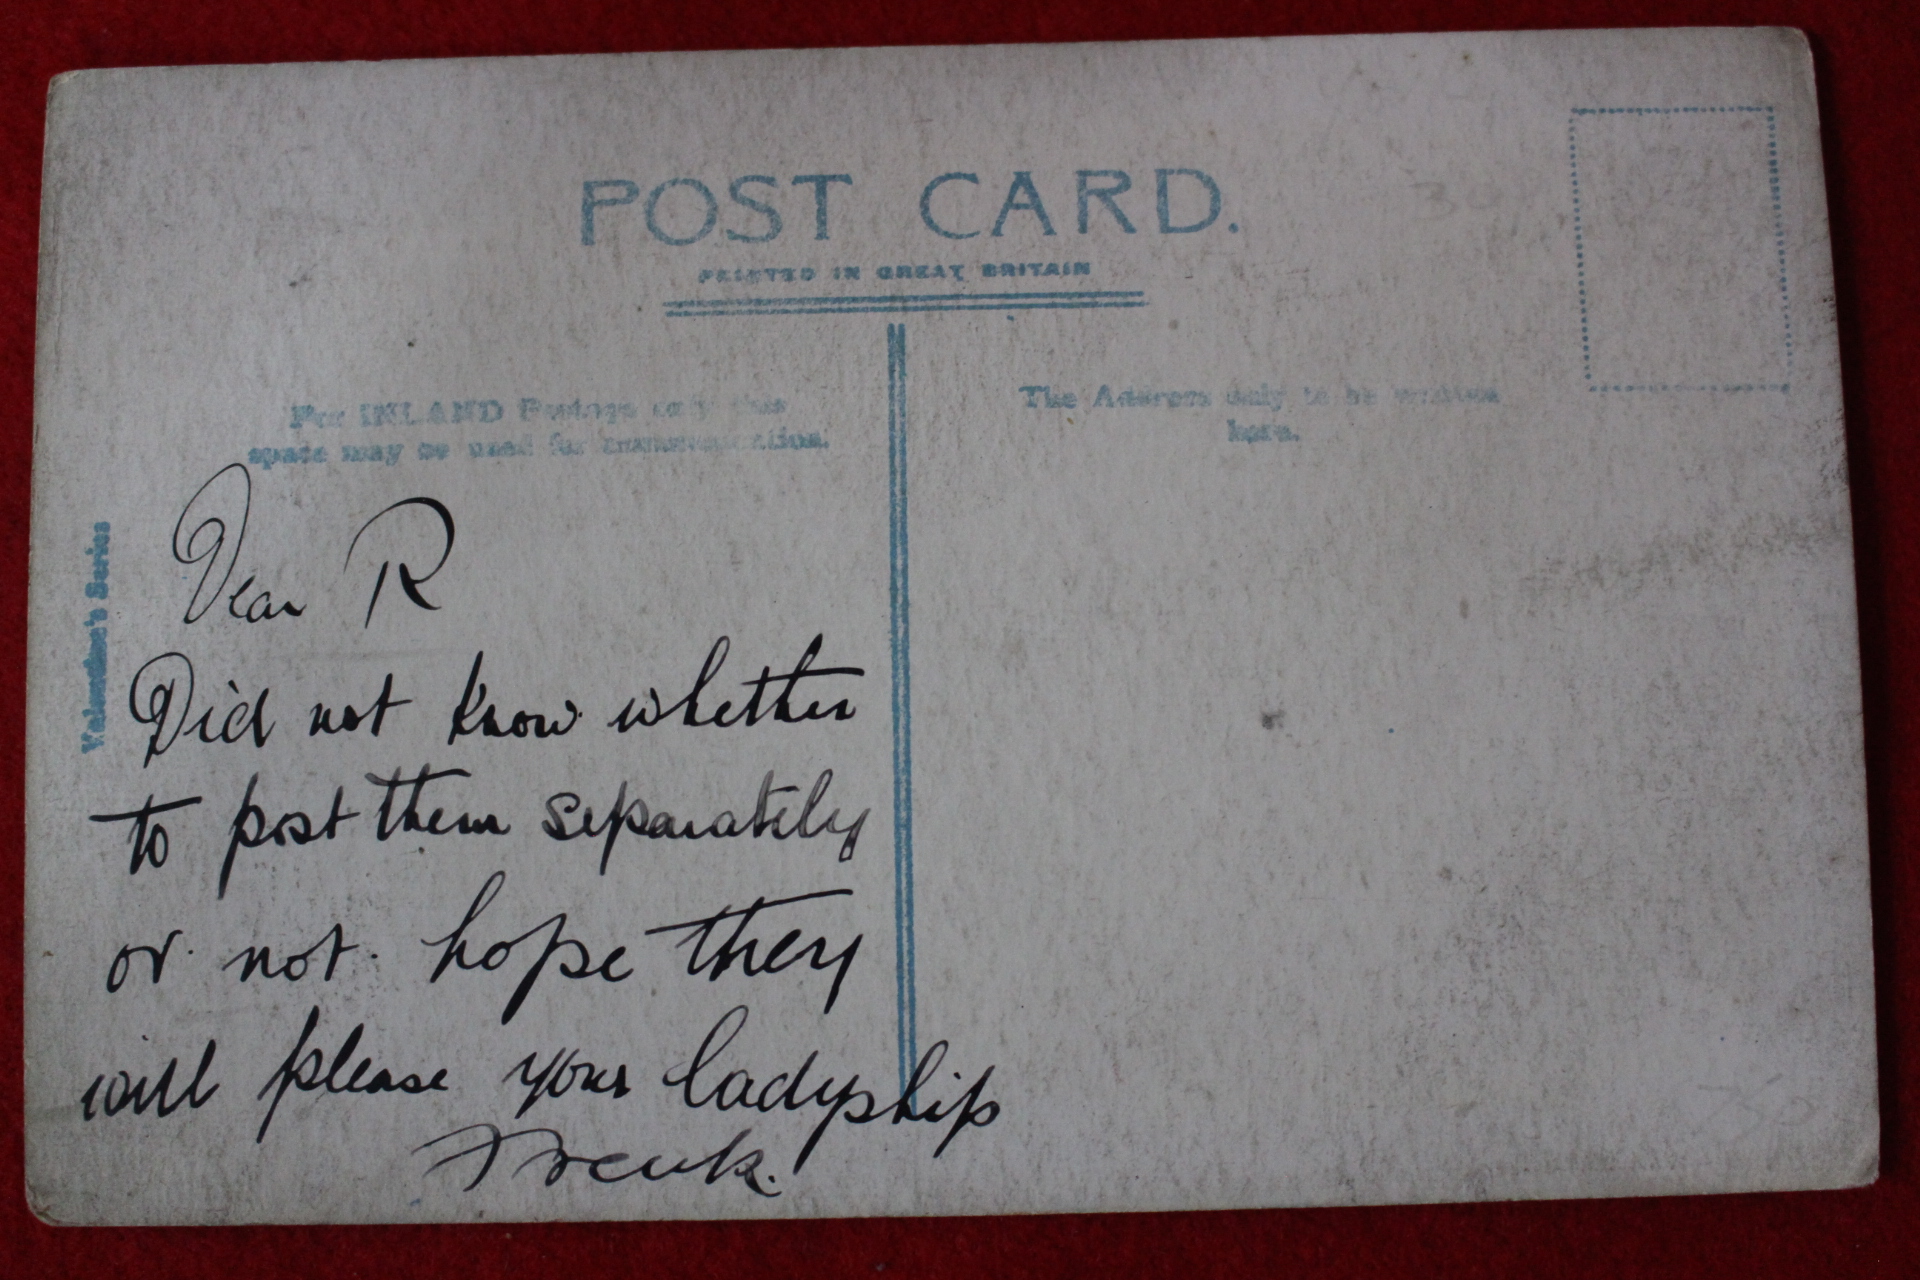 POST CARD.
PRINTED IN GREAT BRITAIN
For INLAND Postage only this
space may be used for communication.
The Address only to be written
here.
Valentine's Series
Dear R
Did not know whether
to post them separately
or not. hope they
will please your ladyship
Frank.